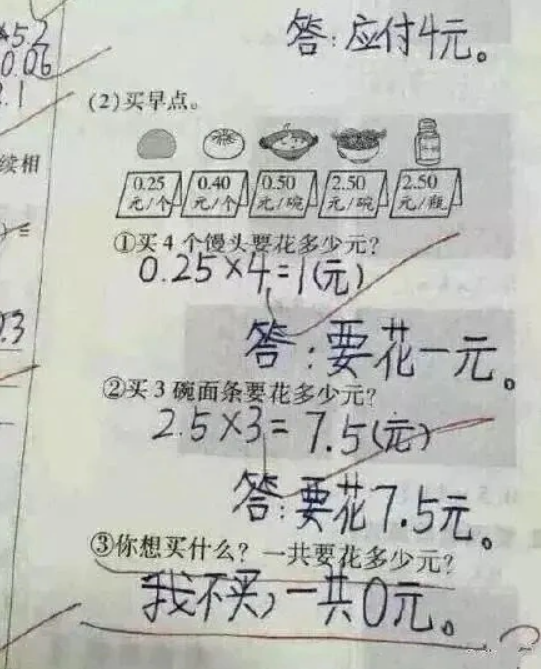 5.2
0.06
.1
答:应付4元。
(2)买早点。
续相
0.25 0.40 0.50 2.50 2.50
元/个 元/个 元/碗 元/碗 元/瓶
①买4个馒头要花多少元?
0.25×4=1(元)
.3
答:要花一元。
②买3碗面条要花多少元?
2.5×3=7.5(元)
答:要花7.5元。
③你想买什么?一共要花多少元?
我不买,一共0元。
?